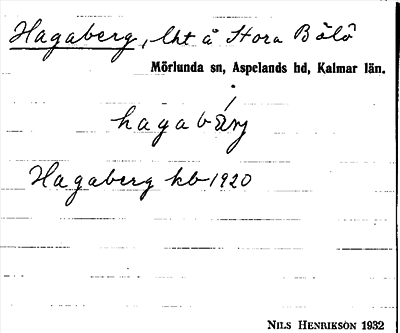 Hagaberg, lht å Stora Bölö
Mörlunda sn, Aspelands hd, Kalmar län.
Hagaberg kb 1920
NILS HENRIKSON 1932